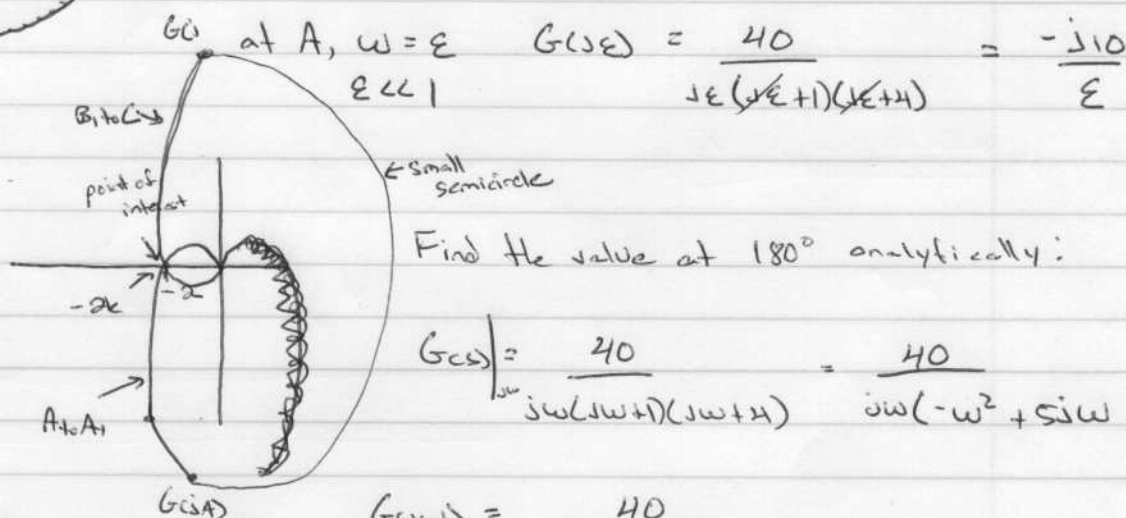 G(j at A, ω = ε G(jε) = 40 / jε(jε+1)(jε+4) = -j10 / ε
ε << 1
B, to C
← small semicircle
point of interest
Find the value at 180° analytically:
-2k
-2
G(s)|jω = 40 / jω(jω+1)(jω+4) = 40 / jω(-ω² + 5jω
A to A1
G(jA)
40